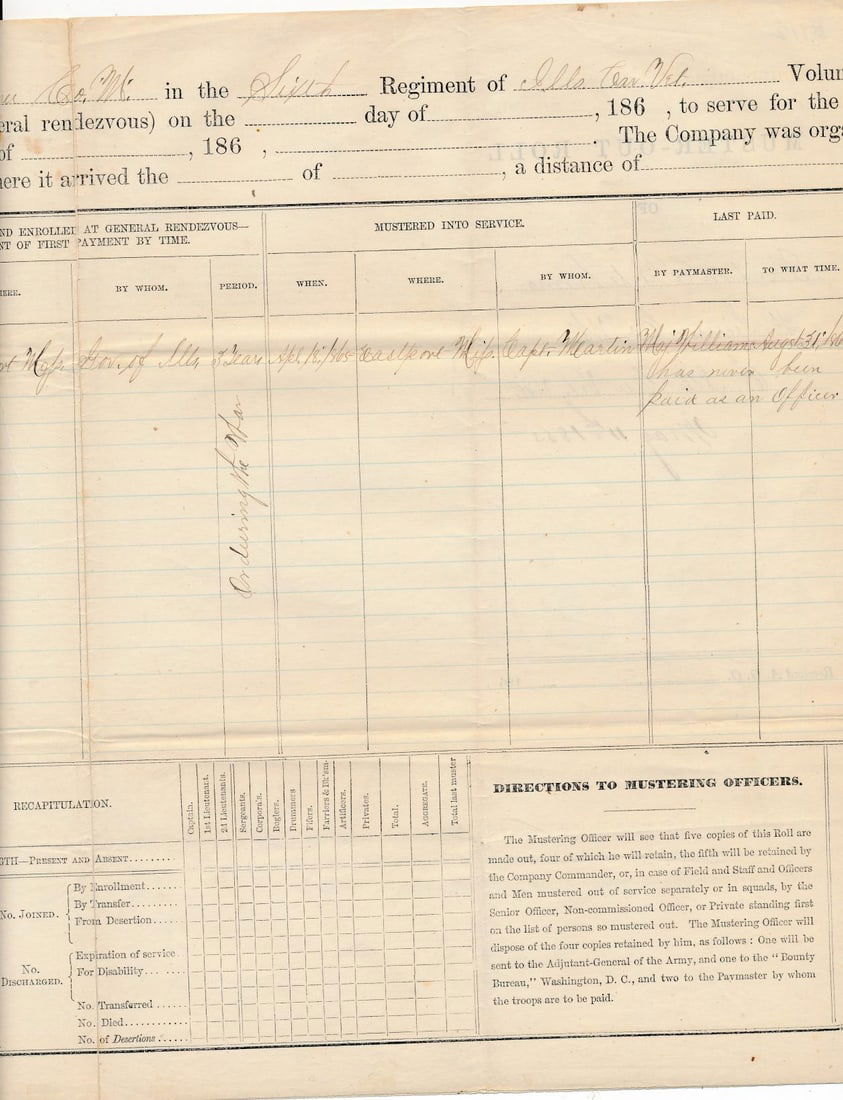 Co. M. in the Sixth Regiment of Ills Cav Vet. Volun
eral rendezvous) on the day of , 186 , to serve for the
of , 186 , . The Company was orga
here it arrived the of , a distance of
ND ENROLLED AT GENERAL RENDEZVOUS—
NT OF FIRST PAYMENT BY TIME.
MUSTERED INTO SERVICE.
LAST PAID.
HERE.
BY WHOM.
PERIOD.
WHEN.
WHERE.
BY WHOM.
BY PAYMASTER.
TO WHAT TIME.
rt Miss. Gov. of Ills 3 Years Apl. 1865 Eastport Miss. Capt. Martin Maj Williams Augst 31st/186
has never been
paid as an Officer
Or during the War
RECAPITULATION.
Captain.
1st Lieutenant.
2d Lieutenants.
Sergeants.
Corpora's.
Buglers.
Drummers.
Fifers.
Farriers & Bl'sm-
Artificers.
Privates.
Total.
AGGREGATE.
Total last muster
GTH—PRESENT AND ABSENT
NO. JOINED.
By Enrollment
By Transfer
From Desertion
NO. DISCHARGED.
Expiration of service.
For Disability
No. Transferred
No. Died
No. of Desertions
DIRECTIONS TO MUSTERING OFFICERS.
The Mustering Officer will see that five copies of this Roll are
made out, four of which he will retain, the fifth will be retained by
the Company Commander, or, in case of Field and Staff and Officers
and Men mustered out of service separately or in squads, by the
Senior Officer, Non-commissioned Officer, or Private standing first
on the list of persons so mustered out. The Mustering Officer will
dispose of the four copies retained by him, as follows : One will be
sent to the Adjutant-General of the Army, and one to the “ Bounty
Bureau,” Washington, D. C., and two to the Paymaster by whom
the troops are to be paid.